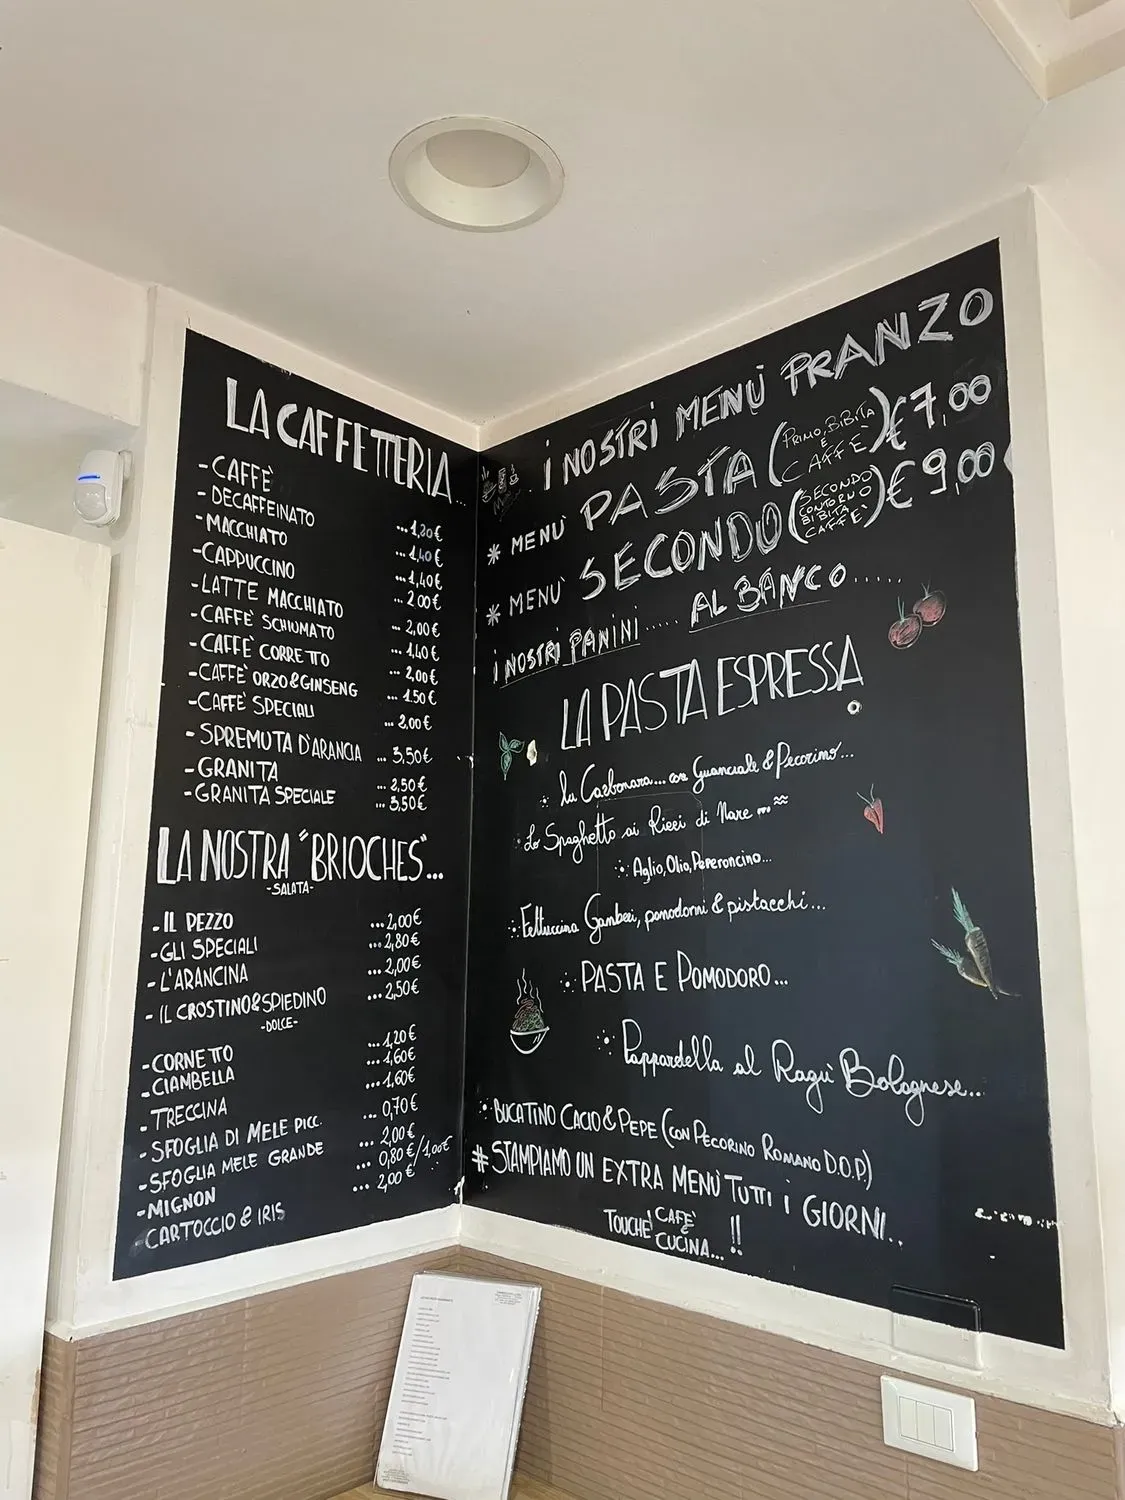 LA CAFFETTERIA...
-CAFFÈ ... 1,20€
-DECAFFEINATO ... 1,40€
-MACCHIATO ... 1,40€
-CAPPUCCINO ... 2,00€
-LATTE MACCHIATO ... 2,00€
-CAFFÈ SCHIUMATO ... 1,40€
-CAFFÈ CORRETTO ... 2,00€
-CAFFÈ ORZO&GINSENG ... 1.50€
-CAFFÈ SPECIALI ... 2,00€
-SPREMUTA D'ARANCIA ... 3,50€
-GRANITA ... 2,50€
-GRANITA SPECIALE ... 3,50€
LA NOSTRA "BRIOCHES"...
-SALATA-
-IL PEZZO ...2,00€
-GLI SPECIALI ...2,80€
-L'ARANCINA ...2,00€
-IL CROSTINO&SPIEDINO ...2,50€
-DOLCE-
-CORNETTO ...1,20€
-CIAMBELLA ...1,60€
-TRECCINA ...1,60€
-SFOGLIA DI MELE PICC. ... 0,70€
-SFOGLIA MELE GRANDE ... 2,00€
-MIGNON ... 0,80€/1,00€
-CARTOCCIO & IRIS ... 2,00€
I NOSTRI MENÙ PRANZO
* MENÙ PASTA (PRIMO, BIBITA E CAFFÈ) € 7,00
* MENÙ SECONDO (SECONDO CONTORNO BIBITA CAFFÈ) € 9,00
I NOSTRI PANINI..... AL BANCO.....
LA PASTA ESPRESSA
la Carbonara... con Guanciale & Pecorino...
Lo Spaghetto ai Ricci di Mare ...
Aglio, Olio, Peperoncino...
Fettuccina Gamberi, pomodorni & pistacchi...
PASTA E POMODORO...
Pappardella al Ragù Bolognese...
BUCATINO CACIO & PEPE (CON PECORINO ROMANO D.O.P.)
# STAMPIAMO UN EXTRA MENÙ TUTTI I GIORNI..
TOUCHÈ CAFÈ E CUCINA... !!